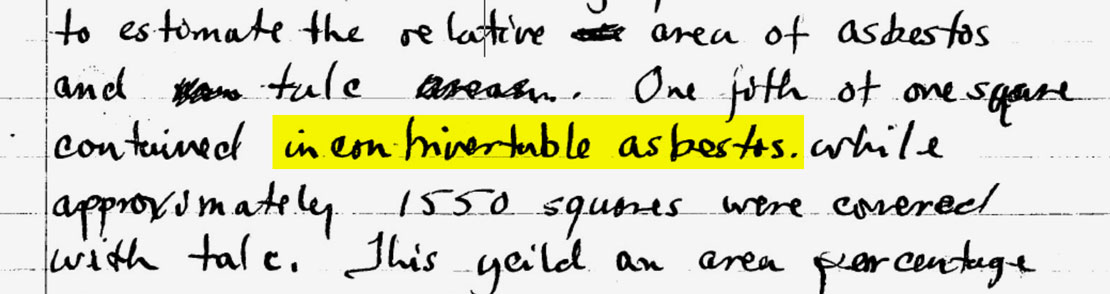 to estomate the relative area of asbestos
and talc . One fith of one square
contained incontrivertable asbestos. while
approximately 1550 squares were covered
with talc. This yeild an area percentage